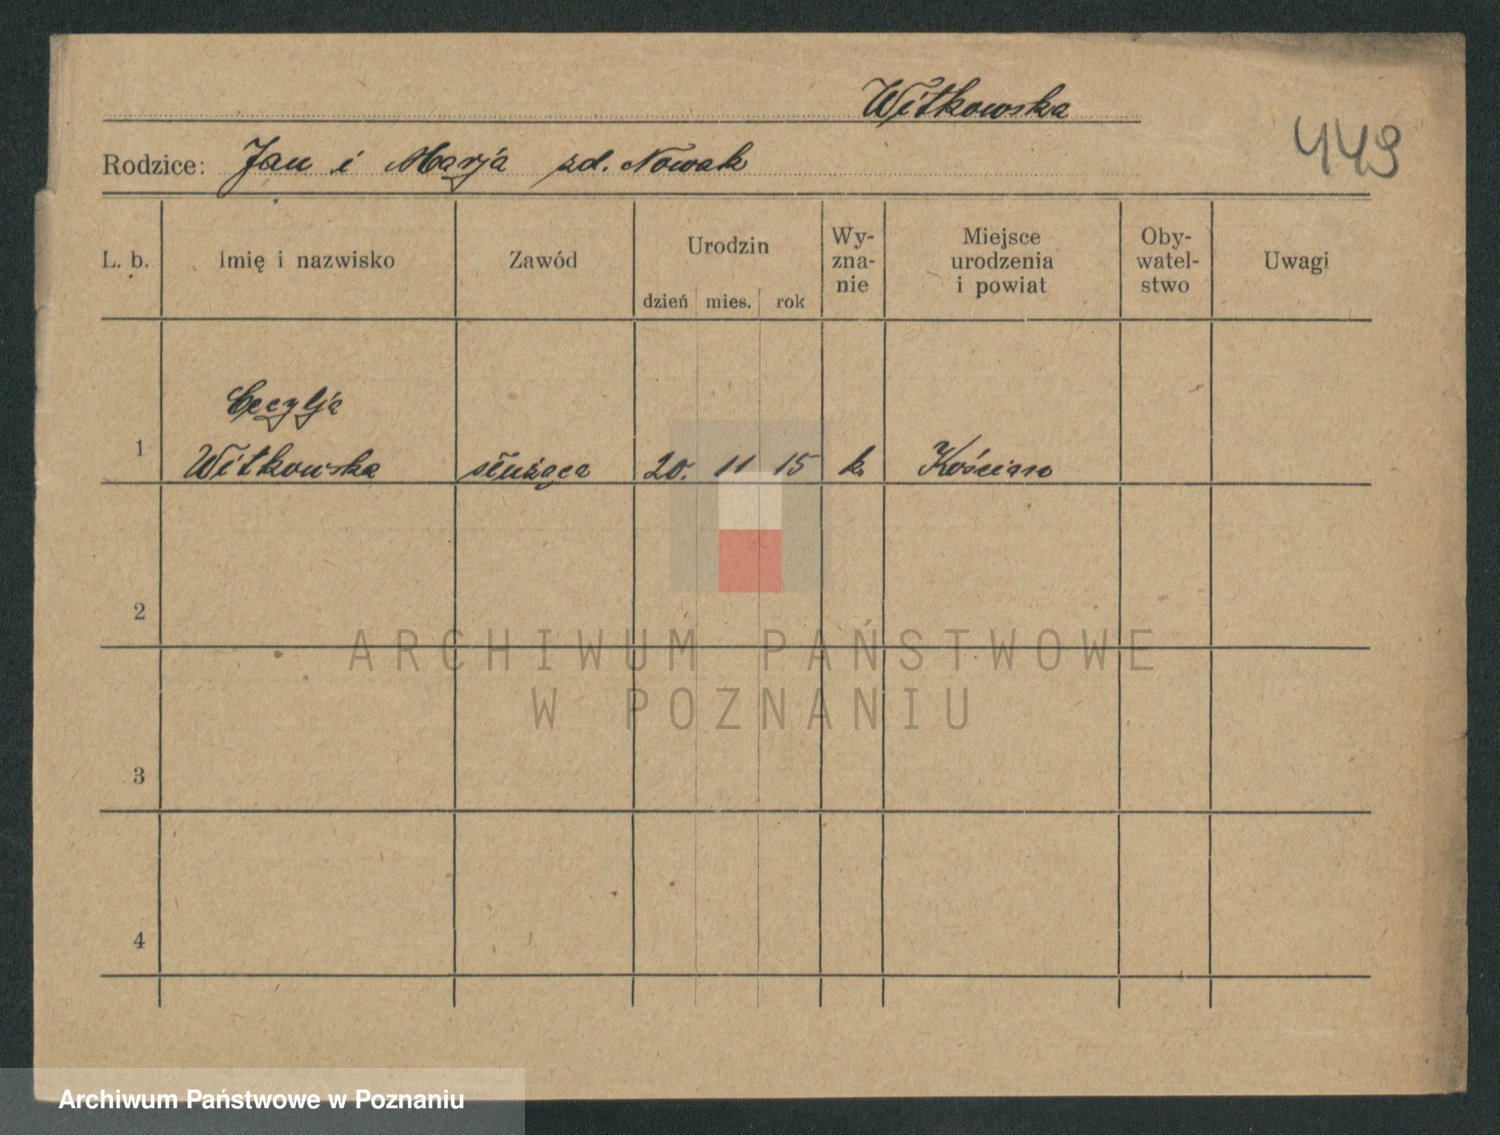 Witkowska
449
Rodzice: Jan i Marja zd. Nowak
L. b. Imię i nazwisko Zawód Urodzin dzień mies. rok Wy-zna-nie Miejsce urodzenia i powiat Oby-watel-stwo Uwagi
Cecylja
1 Witkowska służąca 20. 11 15 k. Kościan
2
ARCHIWUM PAŃSTWOWE
W POZNANIU
3
4
Archiwum Państwowe w Poznaniu